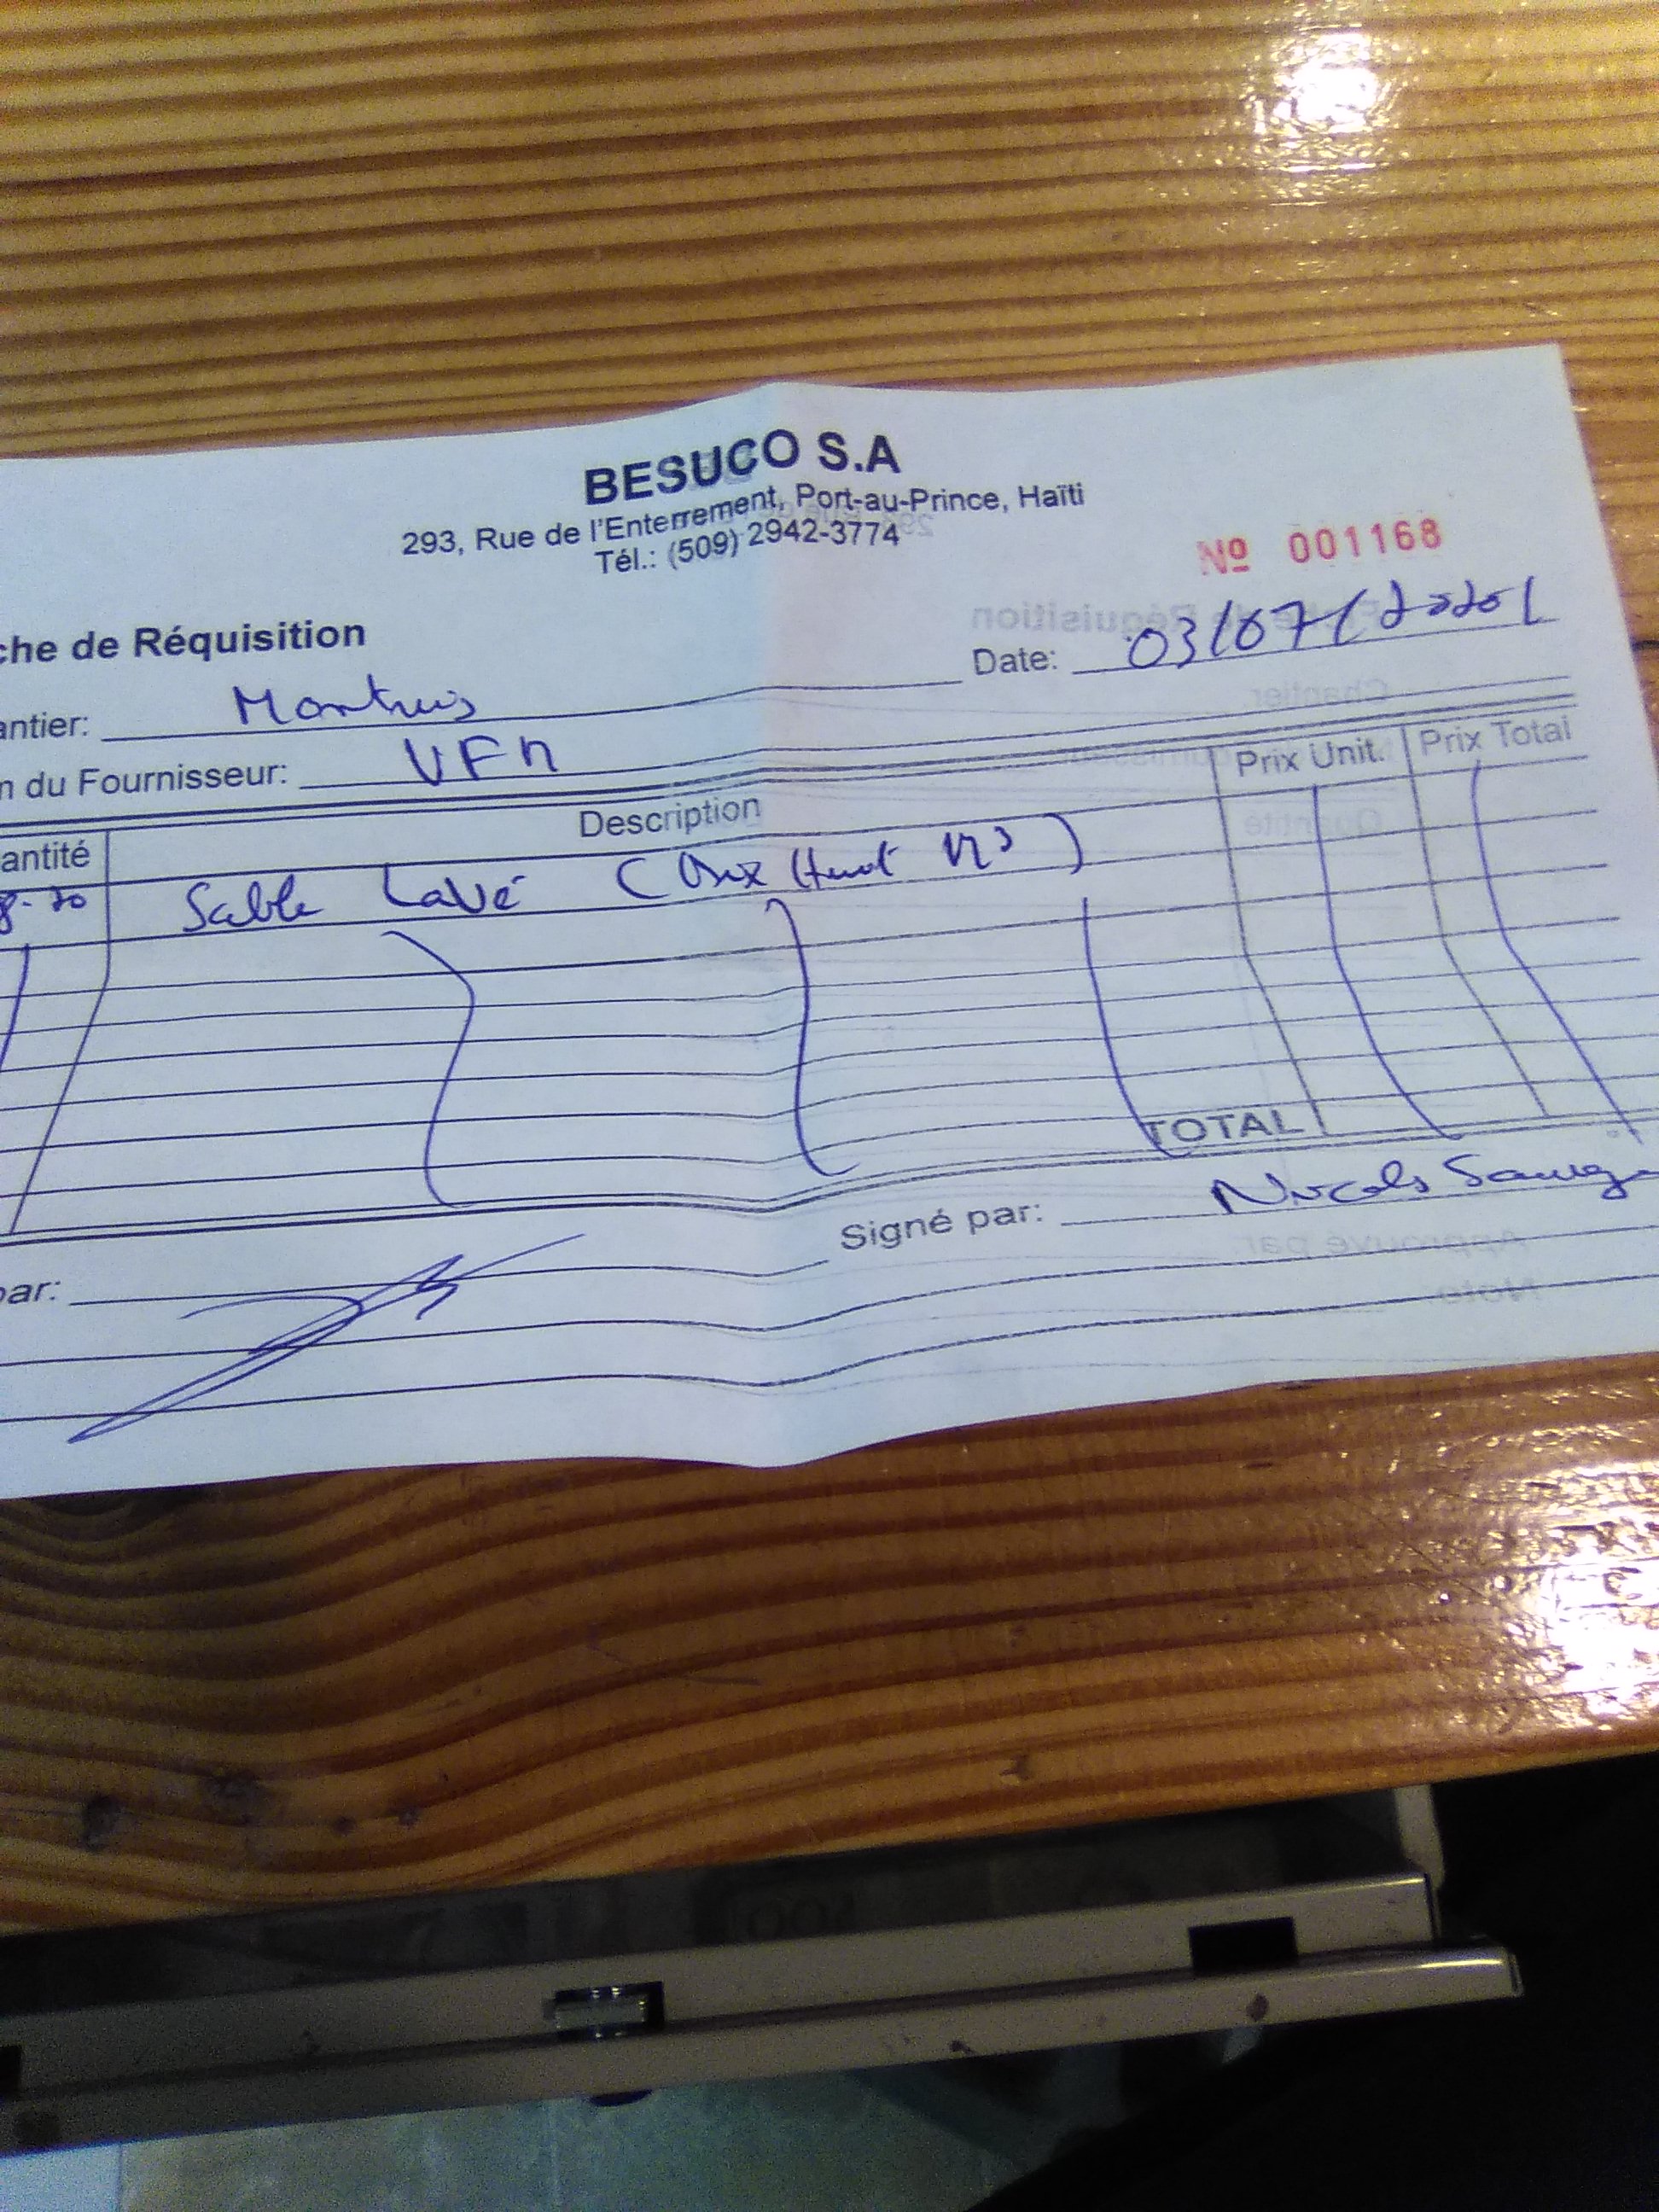 BESUCO S.A
293, Rue de l'Enterrement, Port-au-Prince, Haïti
Tél.: (509) 2942-3774
Nº 001168
che de Réquisition
Date: 03/07/
antier: Montruis
n du Fournisseur: VFM
antité Description Prix Unit. Prix Total
Sable Lavé (Dix Huit M3)
TOTAL
par:
Signé par: